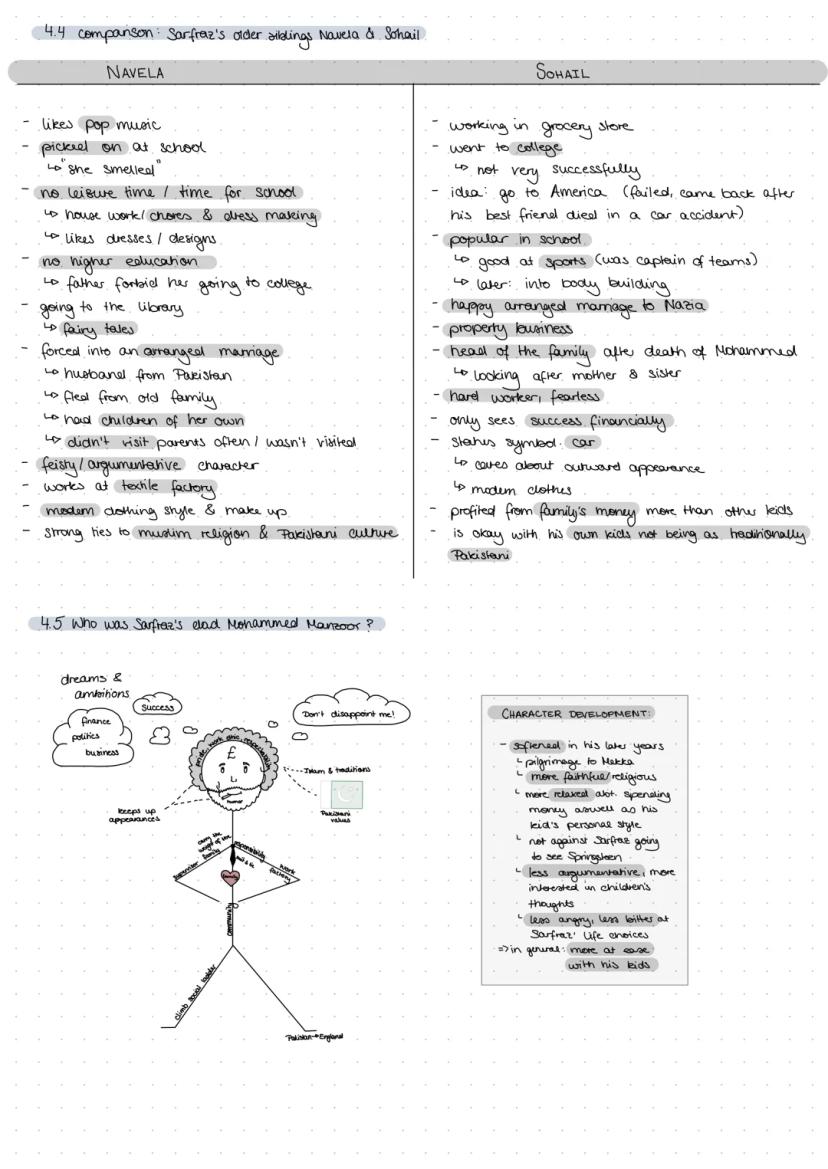 4.4 comparison: Sarfraz's older siblings Navela & Sohail
NAVELA
- likes pop music
- picked on at school
↳ "she smelled"
- no leisure time / time for school
↳ house work/ chores & dress making
↳ likes dresses / designs
- no higher education
↳ father forbid her going to college
- going to the library
↳ fairy tales
- forced into an arranged marriage
↳ husband from Pakistan
↳ fled from old family
↳ had children of her own
↳ didn't visit parents often / wasn't visited
- feisty/argumentative character
- works at textile factory
- modern clothing style & make up
- strong ties to muslim religion & Pakistani culture
SOHAIL
- working in grocery store
- went to college
↳ not very successfully
- idea: go to America (failed, came back after
his best friend died in a car accident)
- popular in school
↳ good at sports (was captain of teams)
↳ later: into body building
- happy arranged marriage to Nazia
- property business
- head of the family after death of Mohammed
↳ looking after mother & sister
- hard worker, fearless
- only sees success financially
- status symbol: car
↳ cares about outward appearance
↳ modern clothes
- profited from family's money more than other kids
- is okay with his own kids not being as traditionally
Pakistani
4.5 Who was Sarfraz's dad Mohammed Manzoor?
dreams &
ambitions
success
finance
politics
business
Don't disappoint me!
pride, work ethic, respectability
£
humor
Islam & traditions
Pakistani
values
keeps up
appearances
carry the
weight of the
family
responsibility
suit & tie
work
factory
family
community
climb social ladder
Pakistan→England
CHARACTER DEVELOPMENT:
- softened in his later years
↳ pilgrimage to Mekka
↳ more faithful/religious
↳ more relaxed abt. spending
money aswell as his
kid's personal style
↳ not against Sarfraz going
to see Springsteen
↳ less argumentative, more
interested in children's
thoughts
↳ less angry, less bitter at
Sarfraz' life choices
=> in general: more at ease
with his kids